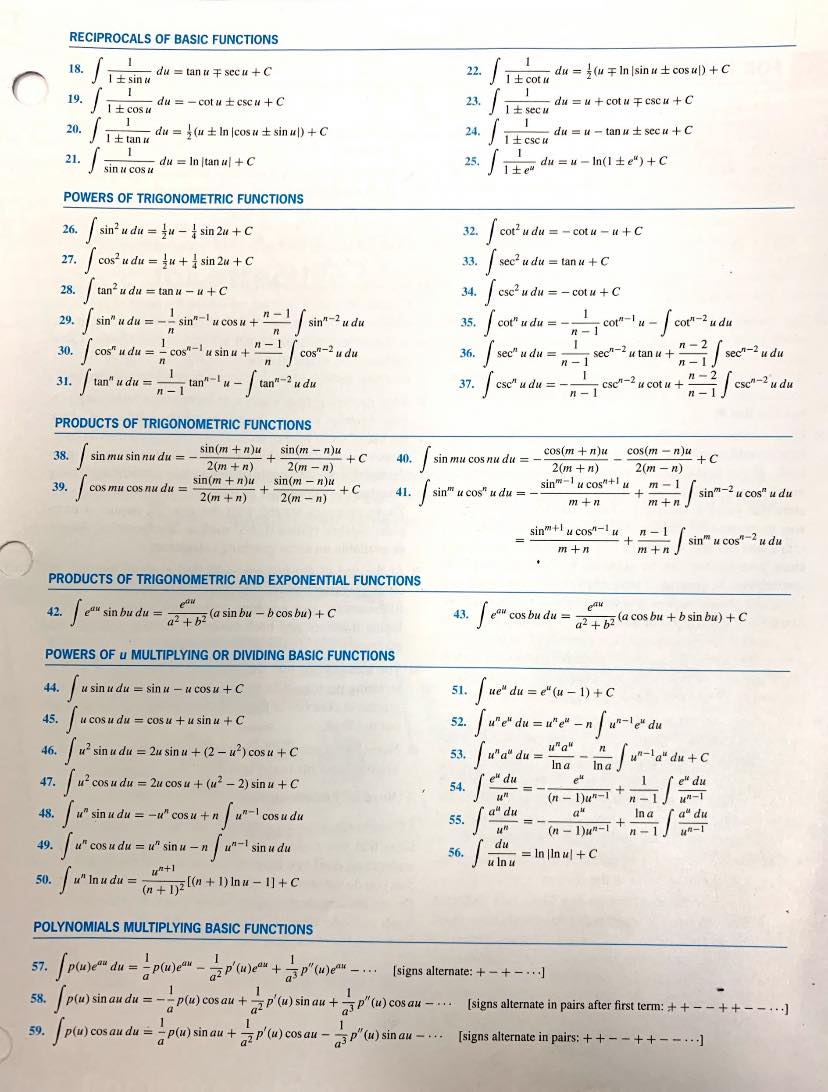 RECIPROCALS OF BASIC FUNCTIONS
18. ∫ 1/(1 ± sin u) du = tan u ∓ sec u + C
19. ∫ 1/(1 ± cos u) du = − cot u ± csc u + C
20. ∫ 1/(1 ± tan u) du = ½(u ± ln |cos u ± sin u|) + C
21. ∫ 1/(sin u cos u) du = ln |tan u| + C
22. ∫ 1/(1 ± cot u) du = ½(u ∓ ln |sin u ± cos u|) + C
23. ∫ 1/(1 ± sec u) du = u + cot u ∓ csc u + C
24. ∫ 1/(1 ± csc u) du = u − tan u ± sec u + C
25. ∫ 1/(1 ± eᵘ) du = u − ln(1 ± eᵘ) + C
POWERS OF TRIGONOMETRIC FUNCTIONS
26. ∫ sin² u du = ½u − ¼ sin 2u + C
27. ∫ cos² u du = ½u + ¼ sin 2u + C
28. ∫ tan² u du = tan u − u + C
29. ∫ sinⁿ u du = −(1/n) sinⁿ⁻¹ u cos u + ((n − 1)/n) ∫ sinⁿ⁻² u du
30. ∫ cosⁿ u du = (1/n) cosⁿ⁻¹ u sin u + ((n − 1)/n) ∫ cosⁿ⁻² u du
31. ∫ tanⁿ u du = (1/(n − 1)) tanⁿ⁻¹ u − ∫ tanⁿ⁻² u du
32. ∫ cot² u du = − cot u − u + C
33. ∫ sec² u du = tan u + C
34. ∫ csc² u du = − cot u + C
35. ∫ cotⁿ u du = −(1/(n − 1)) cotⁿ⁻¹ u − ∫ cotⁿ⁻² u du
36. ∫ secⁿ u du = (1/(n − 1)) secⁿ⁻² u tan u + ((n − 2)/(n − 1)) ∫ secⁿ⁻² u du
37. ∫ cscⁿ u du = −(1/(n − 1)) cscⁿ⁻² u cot u + ((n − 2)/(n − 1)) ∫ cscⁿ⁻² u du
PRODUCTS OF TRIGONOMETRIC FUNCTIONS
38. ∫ sin mu sin nu du = −sin(m + n)u/(2(m + n)) + sin(m − n)u/(2(m − n)) + C
39. ∫ cos mu cos nu du = sin(m + n)u/(2(m + n)) + sin(m − n)u/(2(m − n)) + C
40. ∫ sin mu cos nu du = −cos(m + n)u/(2(m + n)) − cos(m − n)u/(2(m − n)) + C
41. ∫ sinᵐ u cosⁿ u du = −(sinᵐ⁻¹ u cosⁿ⁺¹ u)/(m + n) + ((m − 1)/(m + n)) ∫ sinᵐ⁻² u cosⁿ u du
= (sinᵐ⁺¹ u cosⁿ⁻¹ u)/(m + n) + ((n − 1)/(m + n)) ∫ sinᵐ u cosⁿ⁻² u du
PRODUCTS OF TRIGONOMETRIC AND EXPONENTIAL FUNCTIONS
42. ∫ eᵃᵘ sin bu du = (eᵃᵘ/(a² + b²))(a sin bu − b cos bu) + C
43. ∫ eᵃᵘ cos bu du = (eᵃᵘ/(a² + b²))(a cos bu + b sin bu) + C
POWERS OF u MULTIPLYING OR DIVIDING BASIC FUNCTIONS
44. ∫ u sin u du = sin u − u cos u + C
45. ∫ u cos u du = cos u + u sin u + C
46. ∫ u² sin u du = 2u sin u + (2 − u²) cos u + C
47. ∫ u² cos u du = 2u cos u + (u² − 2) sin u + C
48. ∫ uⁿ sin u du = −uⁿ cos u + n ∫ uⁿ⁻¹ cos u du
49. ∫ uⁿ cos u du = uⁿ sin u − n ∫ uⁿ⁻¹ sin u du
50. ∫ uⁿ ln u du = (uⁿ⁺¹/(n + 1)²)[(n + 1) ln u − 1] + C
51. ∫ ueᵘ du = eᵘ(u − 1) + C
52. ∫ uⁿeᵘ du = uⁿeᵘ − n ∫ uⁿ⁻¹eᵘ du
53. ∫ uⁿaᵘ du = uⁿaᵘ/ln a − (n/ln a) ∫ uⁿ⁻¹aᵘ du + C
54. ∫ eᵘ du/uⁿ = −eᵘ/((n − 1)uⁿ⁻¹) + (1/(n − 1)) ∫ eᵘ du/uⁿ⁻¹
55. ∫ aᵘ du/uⁿ = −aᵘ/((n − 1)uⁿ⁻¹) + (ln a/(n − 1)) ∫ aᵘ du/uⁿ⁻¹
56. ∫ du/(u ln u) = ln |ln u| + C
POLYNOMIALS MULTIPLYING BASIC FUNCTIONS
57. ∫ p(u)eᵃᵘ du = (1/a)p(u)eᵃᵘ − (1/a²)p′(u)eᵃᵘ + (1/a³)p″(u)eᵃᵘ − ··· [signs alternate: + − + − ···]
58. ∫ p(u) sin au du = −(1/a)p(u) cos au + (1/a²)p′(u) sin au + (1/a³)p″(u) cos au − ··· [signs alternate in pairs after first term: + + − − + + − − ···]
59. ∫ p(u) cos au du = (1/a)p(u) sin au + (1/a²)p′(u) cos au − (1/a³)p″(u) sin au − ··· [signs alternate in pairs: + + − − + + − − ···]